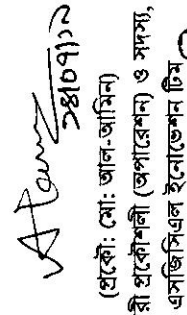 ২৪/০৭/১২
(প্রকৌ: মো: আল-আমিন)
রী প্রকৌশলী (অপারেশন) ও সদস্য,
এসজিসিএল ইনোভেশন টিম